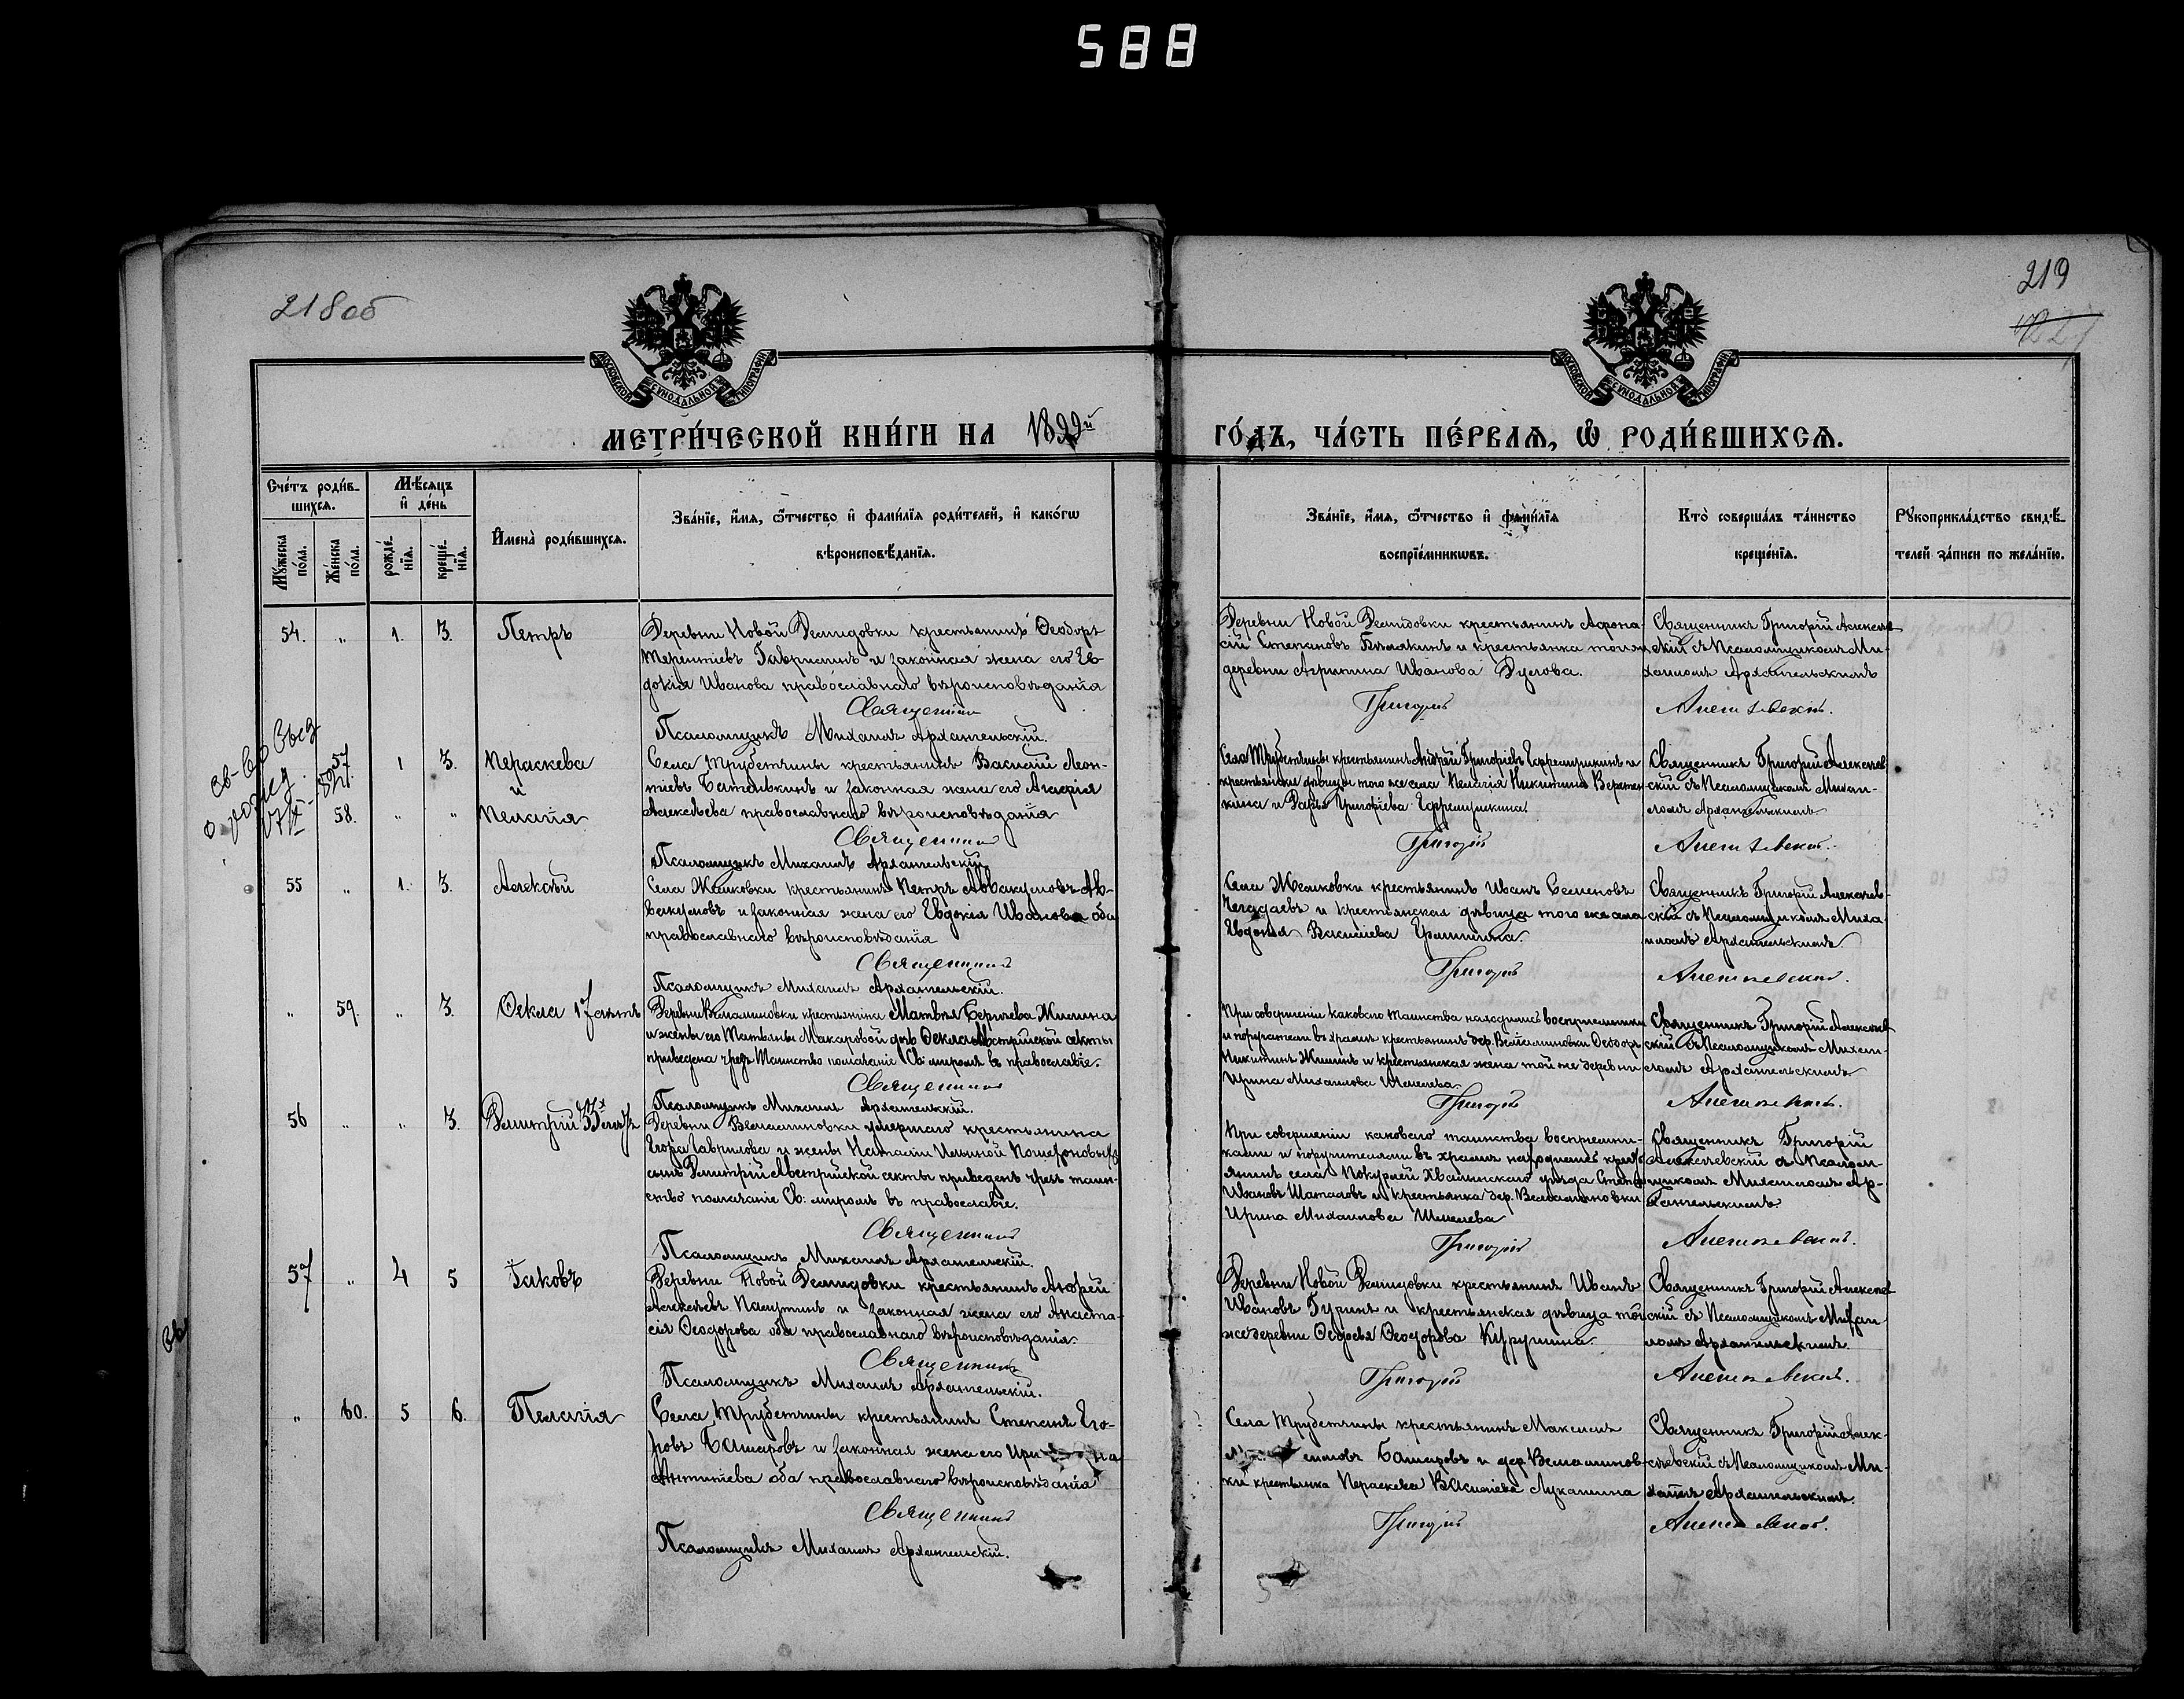 588
218 об
219
МОСКОВСКОЙ СУНОДАЛЬНОЙ ТИПОГРАФІИ
МОСКОВСКОЙ СУНОДАЛЬНОЙ ТИПОГРАФІИ
МЕТРИ́ЧЕСКОЙ КНИ́ГИ НА 1899й
ГО́ДЪ, ЧА́СТЬ ПЕ́РВАѦ, Ѡ РОДИ́ВШИХСѦ.
Сче́тъ роди́в-
шихсѧ.
Мѣ́сѧцъ
и҆ де́нь
Мꙋжеска по́ла.
Же́нска по́ла.
рожде́-
нїѧ.
креще́-
нїѧ.
И҆мена̀ роди́вшихсѧ.
Зва́нїе, и҆́мѧ, ѻ҆́тчество и҆ фами́лїѧ роди́телей, и҆ како́гѡ
вѣроисповѣ́данїѧ.
Зва́нїе, и҆́мѧ, ѻ҆́тчество и҆ фами́лїѧ
воспрїе́мникѡвъ.
Кто̀ соверша́лъ та́инство
креще́нїѧ.
Рꙋкоприкла́дство свидѣ́-
телей за́писи по жела́нїю.
54. „ 1. 3. Петръ
Деревни Новой Демидовки крестьянинъ Ѳеодоръ
Терентіевъ Гаврилинъ и законная жена его Ев-
докія Иванова православнаго вѣроисповѣданія
Священникъ
Псаломщикъ Михаилъ Архангельскій.
Деревни Новой Демидовки крестьянинъ Афона-
сій Степановъ и крестьянка той же
деревни Агрипина Иванова
Григорій
Священникъ Григорій Алексѣев-
скій съ Псаломщикомъ Ми-
хаиломъ Архангельскимъ
Алексѣевскій.
57 1 3. Параскева
и
58. „ „ Пелагія
Села Трубетчины крестьянинъ Василій Леон-
тіевъ и законная жена его
Алексѣева православнаго вѣроисповѣданія
Священникъ
Псаломщикъ Михаилъ Архангельскій
Села Трубетчины крестьянинъ Андрей Григоріевъ и
крестьянскія дѣвицы того же села Пелагія Никитина
и Григоріева
Григорій
Священникъ Григорій Алексѣев-
скій съ Псаломщикомъ Михаи-
ломъ Архангельскимъ
Алексѣевскій.
55 „ 1. 3. Алексѣй
Села крестьянинъ Петръ Аввакумовъ Ав-
вакумовъ и законная жена его Евдокія Иванова оба
православнаго вѣроисповѣданія
Священникъ
Псаломщикъ Михаилъ Архангельскій.
Села крестьянинъ Иванъ Семеновъ
и крестьянская дѣвица того же села
Евдокія Василіева Гришина.
Григорій
Священникъ Григорій Алексѣев-
скій съ Псаломщикомъ Миха-
иломъ Архангельскимъ
Алексѣевскій.
„ 59. „ 3. Ѳекла 17 лѣтъ
Деревни Веньяминовки крестьянина Матвѣя Сергѣева Жилина
и жены его Татьяны Макаровой дочь Ѳекла Австрійской секты
приведена чрезъ Таинство помазаніе Св. миромъ въ православіе.
Священникъ
Псаломщикъ Михаилъ Архангельскій.
При совершеніи каковаго таинства находились воспріемники
и поручители въ храмѣ крестьянинъ дер. Веньяминовки Ѳеодоръ
Никитинъ Жилинъ и крестьянская жена той же деревни
Ирина Михаилова Шмелева.
Григорій
Священникъ Григорій Алексѣев-
скій съ Псаломщикомъ Михаи-
ломъ Архангельскимъ
Алексѣевскій.
56 „ „ 3. Димитрій
Деревни Веньяминовки умершаго крестьянина
Егора Гаврилова и жены Наталіи Ильиной
сынъ Димитрій Австрійской секты приведенъ чрезъ таин-
ство помазаніе Св. миромъ въ православіе.
Священникъ
Псаломщикъ Михаилъ Архангельскій.
При совершеніи каковаго таинства воспріемни-
ками и поручителями въ храмѣ находились кресть-
янинъ села Покурлей Хвалынскаго уѣзда
Ивановъ Шаталовъ и крестьянка дер. Веньяминовки
Ирина Михаилова Шмелева
Григорій
Священникъ Григорій
Алексѣевскій съ Псалом-
щикомъ Михаиломъ Ар-
хангельскимъ.
Алексѣевскій.
57 „ 4 5 Іаковъ
Деревни Новой Демидовки крестьянинъ Андрей
Алексѣевъ и законная жена его Анаста-
сія Ѳеодорова оба православнаго вѣроисповѣданія.
Священникъ
Псаломщикъ Михаилъ Архангельскій.
Деревни Новой Демидовки крестьянинъ Иванъ
Ивановъ Гуринъ и крестьянская дѣвица той
же деревни Ѳеодосья Ѳеодорова
Григорій
Священникъ Григорій Алексѣев-
скій съ Псаломщикомъ Михаи-
ломъ Архангельскимъ.
Алексѣевскій.
„ 60. 5 6. Пелагія
Села Трубетчины крестьянинъ Степанъ Его-
ровъ Башаровъ и законная жена его
Антипіева оба православнаго вѣроисповѣданія
Священникъ
Псаломщикъ Михаилъ Архангельскій.
Села Трубетчины крестьянинъ Максимъ
Башаровъ и дер. Веньяминов-
ки крестьянка Параскева Василіева Луканина
Григорій
Священникъ Григорій Алек-
сѣевскій съ Псаломщикомъ Ми-
хаиломъ Архангельскимъ.
Алексѣевскій.